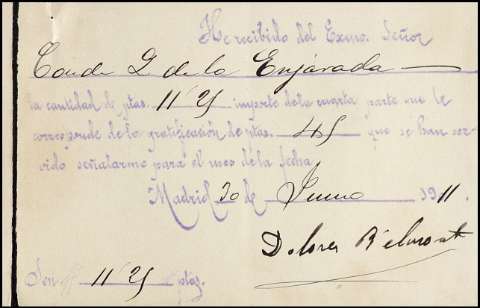 He recibido del Exmo. Señor
Conde de la Enjarada
la cantidad de ptas. 11'25 importe de la cuarta parte que le
corresponde de la gratificación de ptas. 45 que se han ser-
vido señalarme para el mes de la fecha
Madrid 30 de Junio 1911.
Dolores Belmonte
Son 11'25 ptas.